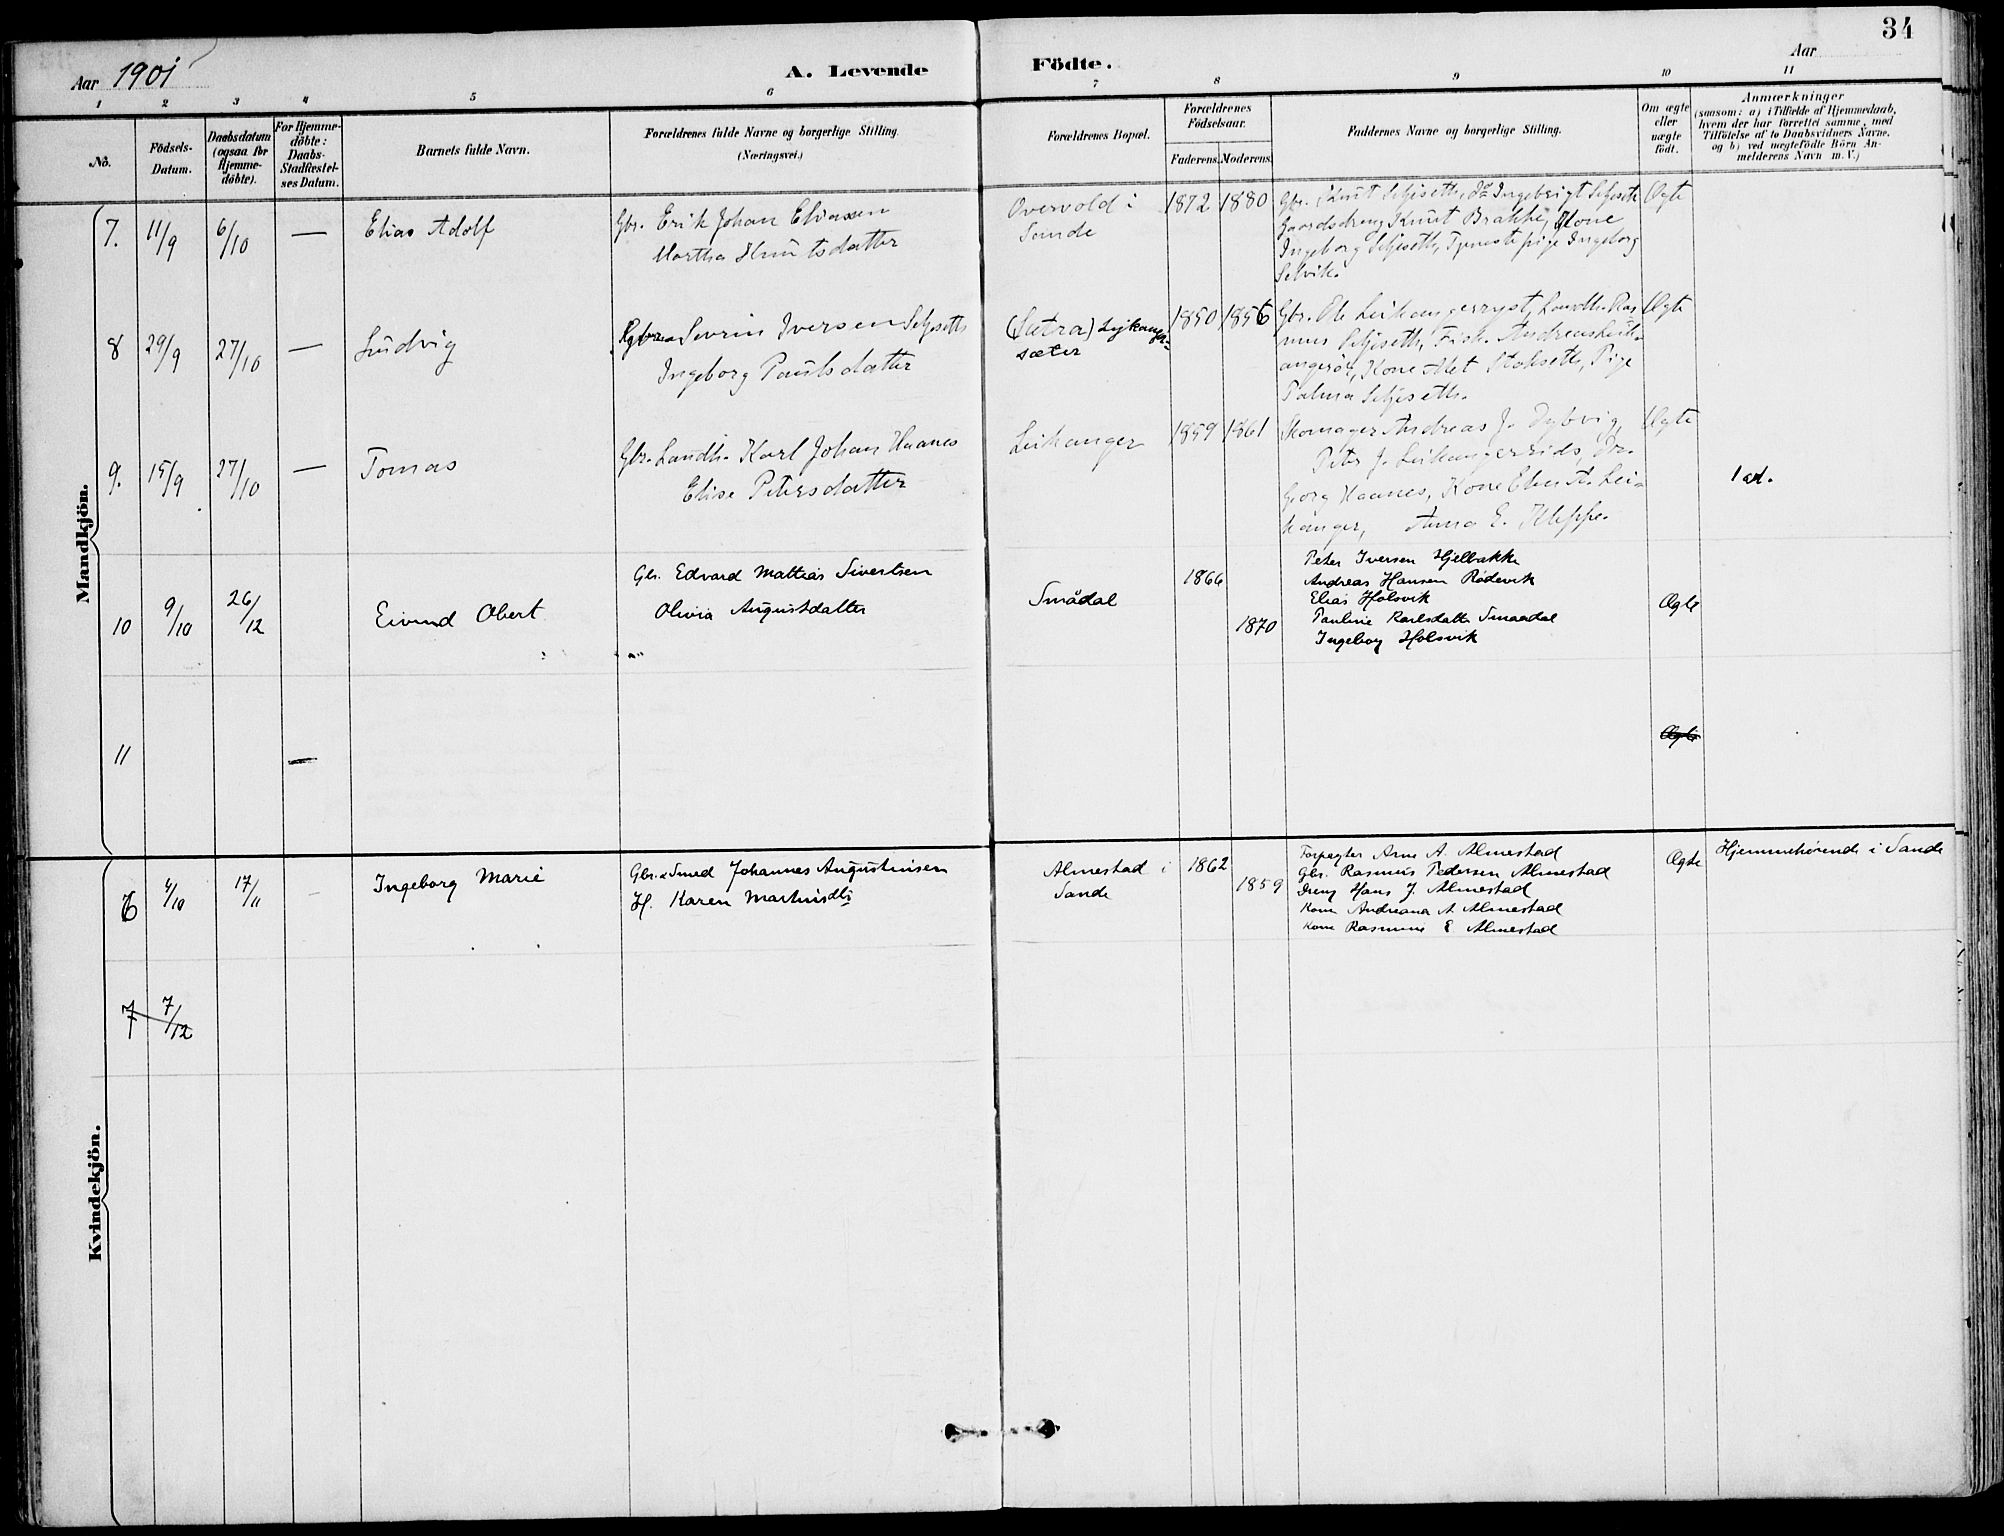 34
Aar 1901
A. Levende
Födte.
Aar
1 2 3 4 5 6 7 8 9 10 11
No.
Födsels-
Datum.
Daabsdatum
(ogsaa for
Hjemme-
döbte).
For Hjemme-
döbte:
Daabs-
Stadfæstel-
ses Datum.
Barnets fulde Navn.
Forældrenes fulde Navne og borgerlige Stilling.
(Næringsvei.)
Forældrenes Bopæl.
Forældrenes
Födselsaar.
Faderens.
Moderens.
Faddernes Navne og borgerlige Stilling.
Om ægte
eller
uægte
födt.
Anmærkninger
(saasom: a) i Tilfælde af Hjemmedaab,
hvem der har forrettet samme, med
Tilföielse af to Daabsvidners Navne,
og b) ved uægtefödte Börn An-
melderens Navn m. V.)
Mandkjön.
7. 11/9 6/10 — Elias Adolf
Gbr. Erik Johan Eliassen
Martha Knutsdatter
Overvold i
Sande
1872 1880
Gbr. Knut Seljeseth, do Ingebrigt Seljeseth
Gaardsdreng Knut Brakke, Kone
Ingeborg Seljeseth, Tjenestepige Ingeborg
Selvik.
Ægte
8 29/9 27/10 — Ludvig
Sevrin Iversen Seljeseth
Ingeborg Paulsdatter
(Sætra) Leikanger-
sæter
1850 1856
Gbr. Ole Leikangernyst, Landh. Ras
mus Seljeseth, Fisk. Andreas Leik-
angeröt, Kone Alet Stokseth, Pige
Palma Seljeseth.
Ægte
9. 15/9 27/10 — Tomas
Gbr. Landh. Karl Johan Haanes
Elise Petersdatter
Leikanger
1859 1861
Skomager Andreas J. Dybvig,
Peter J. Leikangereids, Dr.
Georg Haanes, Kone Elen A. Lei-
kanger, Anna E. Kleppe.
Ægte
1 at.
10 9/10 26/12 Eivind Obert
Gbr. Edvard Mathias Sivertsen
Olivia Augustdatter
Smådal
1866
1870
Peter Iversen Hjelbakke
Andreas Hansen Rødevik
Elias Holsvik
Pauline Karlsdatter Smaadal
Ingeborg Holsvik
Ægte
11 —
Ægte
Kvindekjön.
6 4/10 17/11 — Ingeborg Marie
Gbr. & Smed Johannes Augustinsen
H. Karen Martinsdtr
Almestad i
Sande
1862
1859
Forpagter Arne A. Almestad
Gbr. Rasmus Pedersen Almestad
Dreng Hans J. Almestad
Kone Andreana A Almestad
Kone Rasmine E Almestad
Ægte
Hjemmehørende i Sande
7 7/12